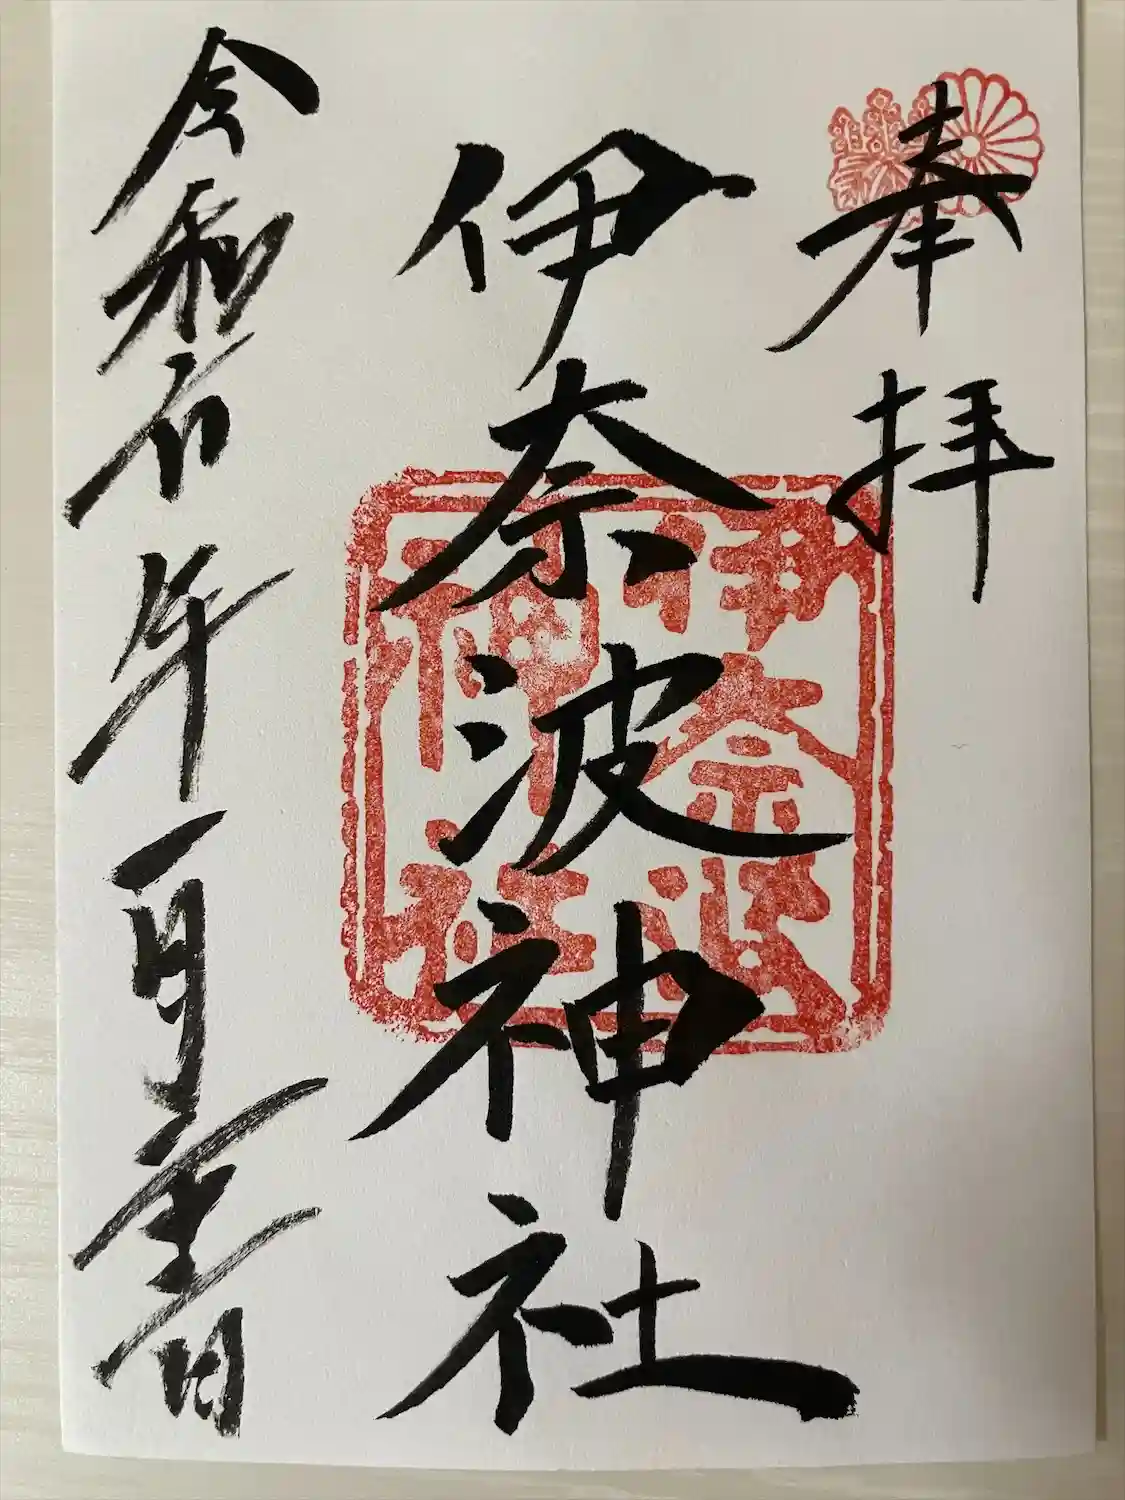 奉拝
伊奈波神社
令和 年一月 日
伊奈波
神社